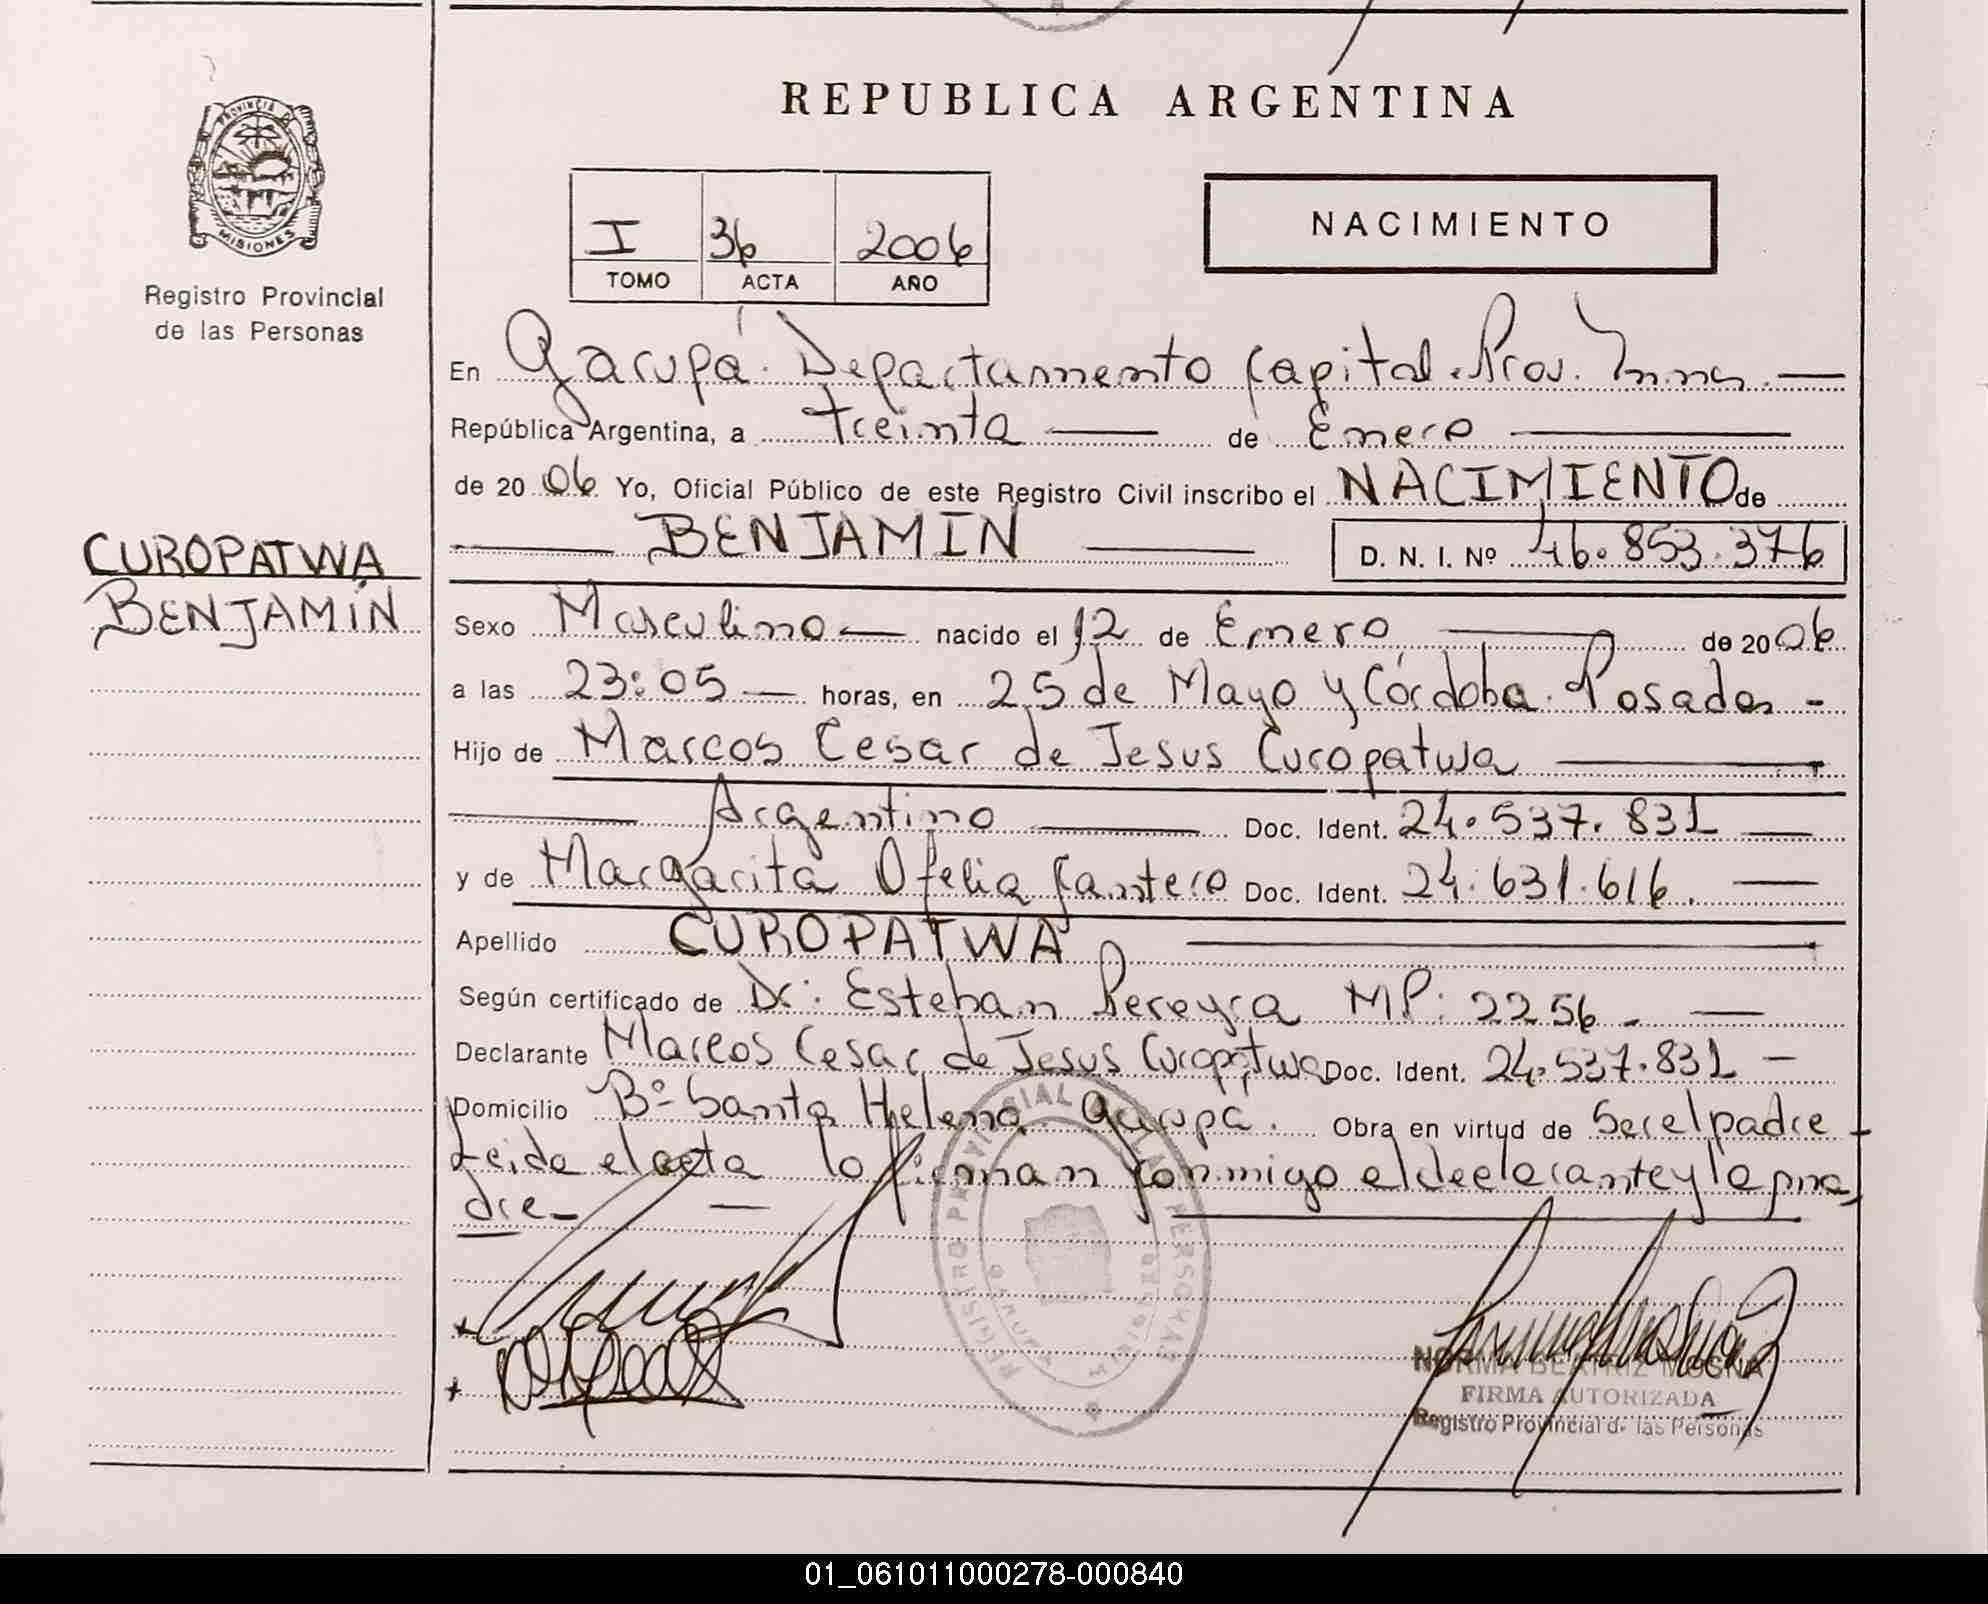 REPUBLICA ARGENTINA
PROVINCIA DE
MISIONES
Registro Provincial
de las Personas
I 36 2006
TOMO ACTA AÑO
NACIMIENTO
En Garupá. Departamento Capital. Prov. Mnes.
República Argentina, a treinta de Enero
de 2006 Yo, Oficial Público de este Registro Civil inscribo el NACIMIENTO de
BENJAMIN D. N. I. Nº 46.853.376
CUROPATWA
BENJAMÍN
Sexo Masculino nacido el 12 de Enero de 2006
a las 23:05 horas, en 25 de Mayo y Córdoba. Posadas -
Hijo de Marcos Cesar de Jesus Curopatwa
Argentino Doc. Ident. 24.537.831
y de Margarita Ofelia Cantero Doc. Ident. 24.631.616.
Apellido CUROPATWA
Según certificado de Dr: Esteban Pereyra MP: 2256.
Declarante Marcos Cesar de Jesus Curopatwa Doc. Ident. 24.537.831
Domicilio Bº Santa Helena Garupá. Obra en virtud de Ser el padre
Leida el acta lo firman conmigo el declarante y la ma
dre
REGISTRO PROVINCIAL DE LAS PERSONAS
NORMA BEATRIZ
FIRMA AUTORIZADA
Registro Provincial de las Personas
01_061011000278-000840